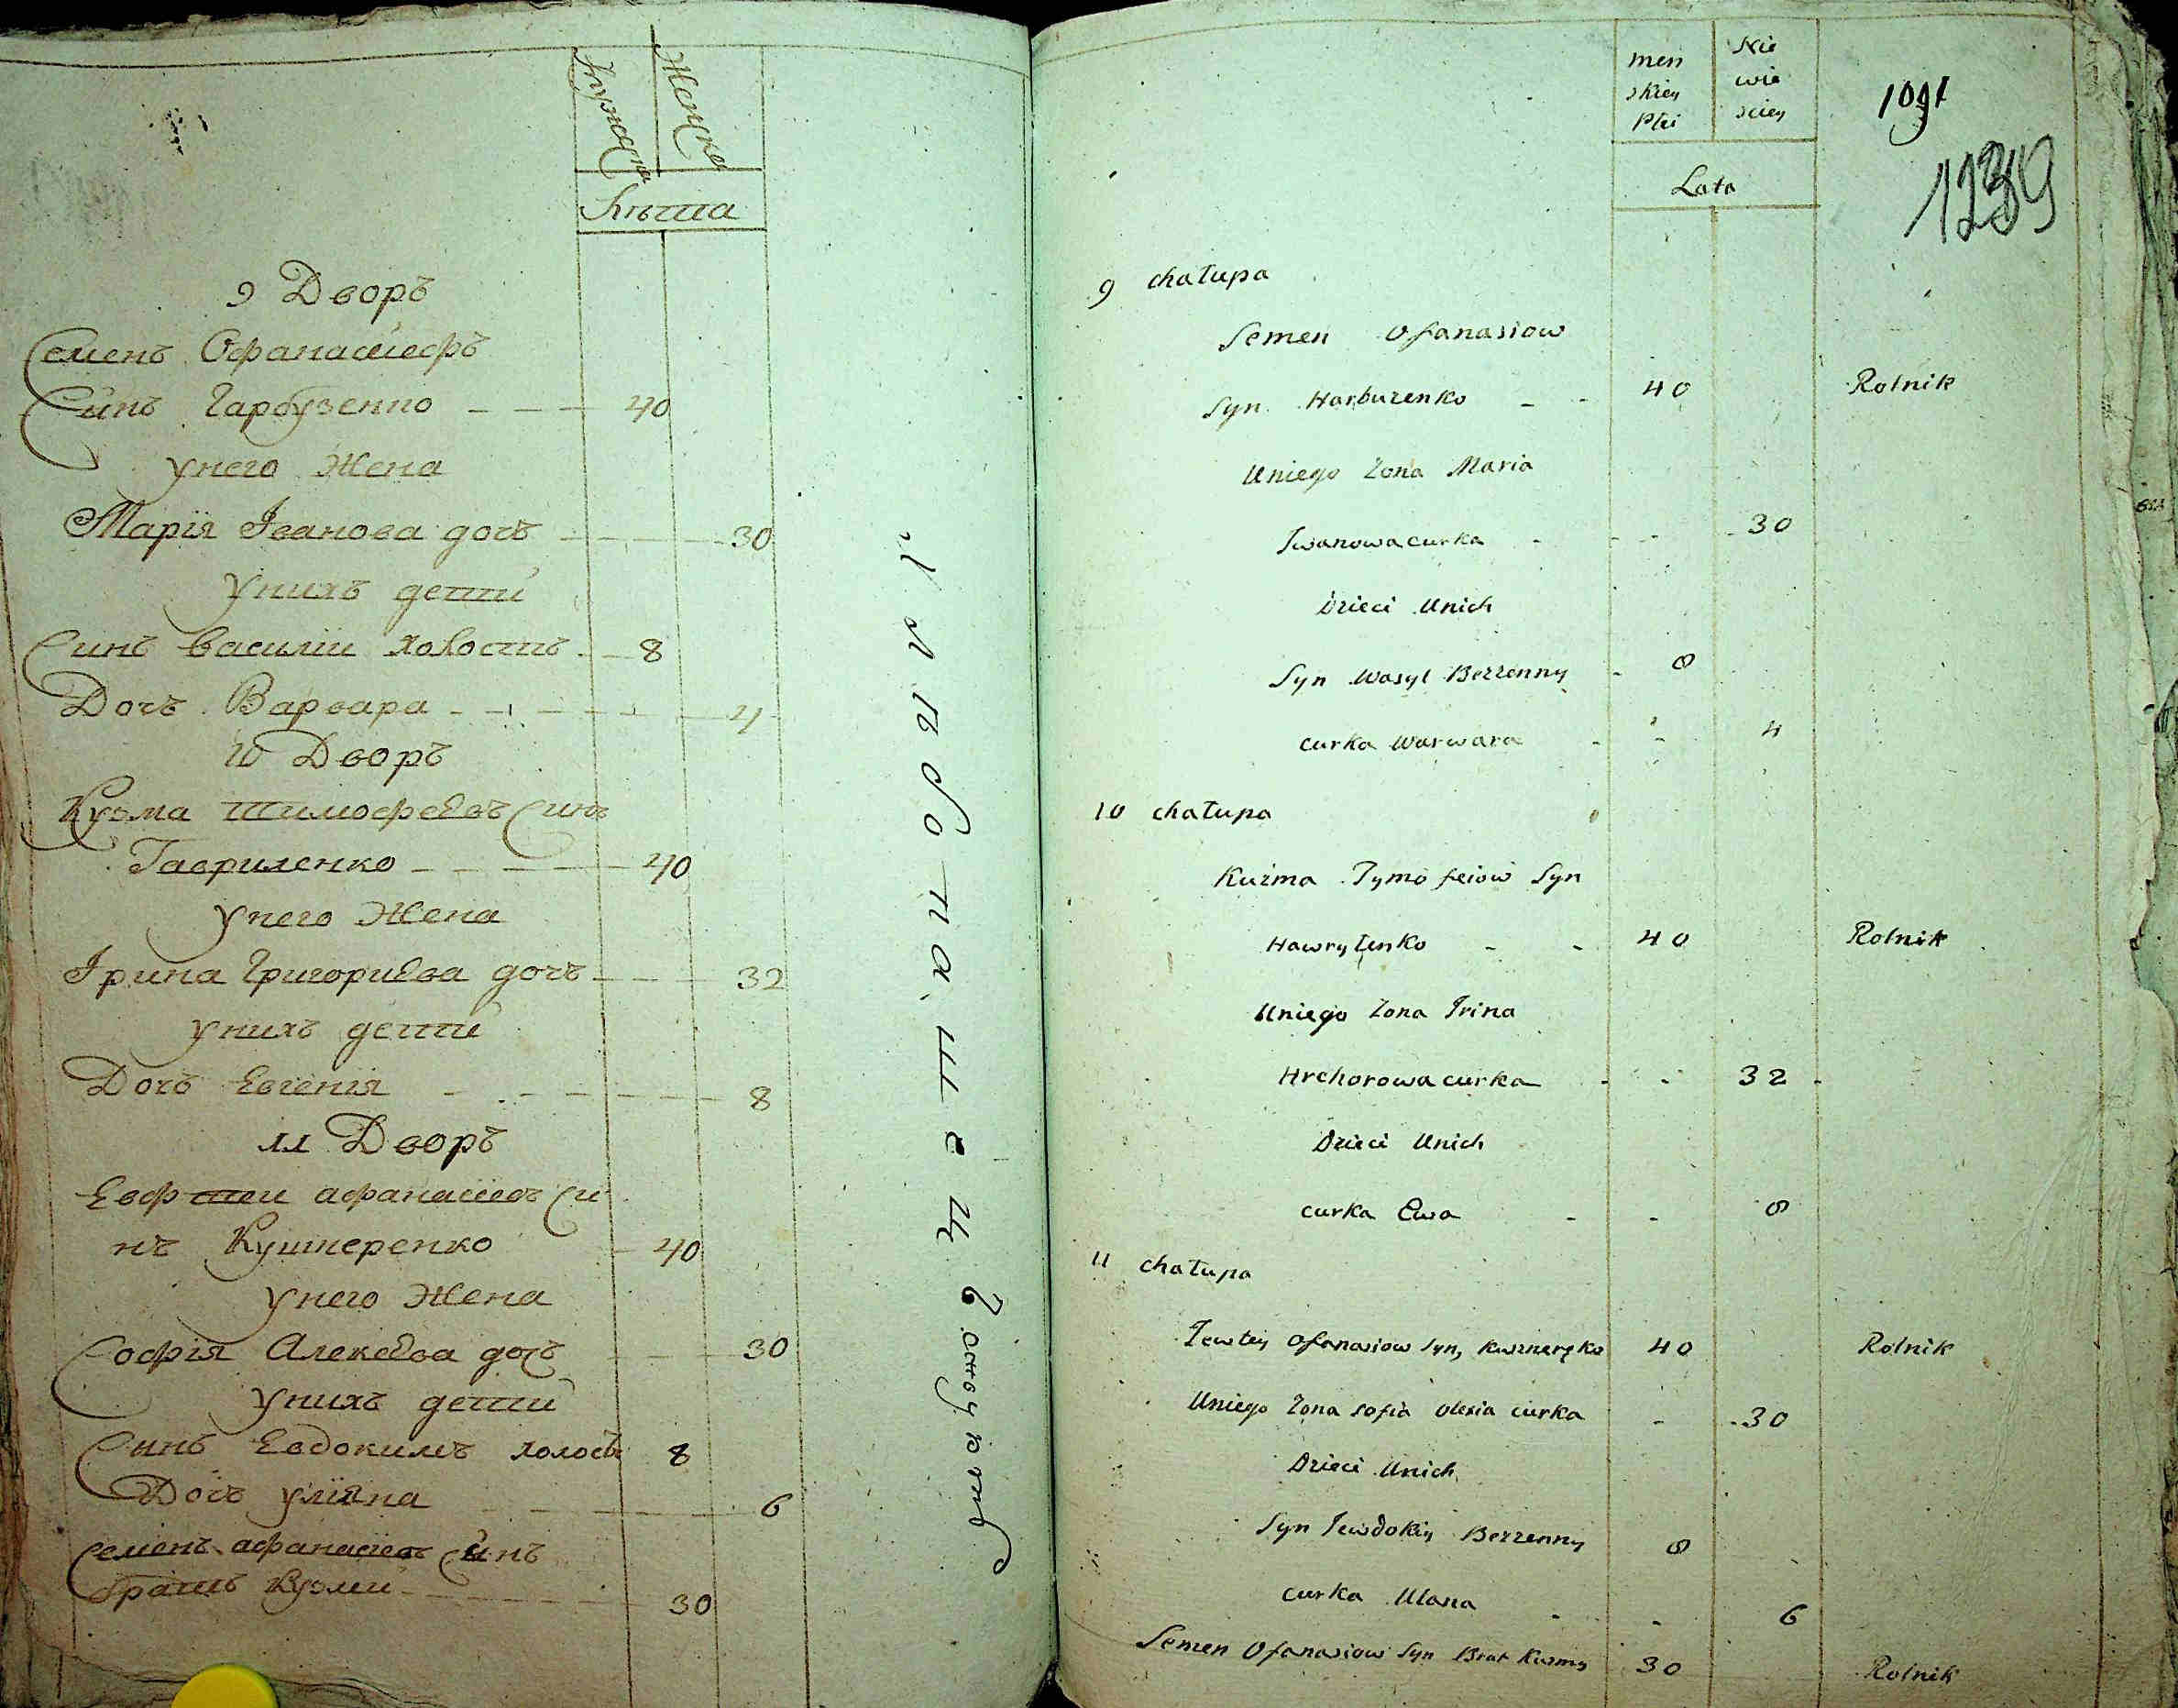 Мужеска
Женска
Лѣта
9 Дворъ
Семенъ Офанасіефъ
Синъ Гарбузенко 40
унего Жена
Марія Іванова дочъ 30
унихъ дети
Синъ василіи холостъ 8
Дочъ Варвара 4
10 Дворъ
Кузма тимофеевъ Синъ
Гавриленко 40
унего Жена
Ірина Григориева дочъ 32
унихъ дети
Дочъ Евгенія 8
11 Дворъ
Евфтеи афанасіевъ Си
нъ Кушнеренко 40
унего Жена
Софія Алексѣева дочъ 30
унихъ дети
Синъ Евдокимъ холостъ 8
Дочъ уліяна 6
Семенъ афанасіевъ Синъ
братъ Кузми 30
men
skiey
Płci
Nie
wie
sciey
Lata
1091
9 chałupa
Semen Ofanasiow
Syn Harbuzenko 40 Rolnik
Uniego Zona Maria
Iwanowa curka 30
Dzieci Unich
Syn Wasyl Bezzenny 8
curka Warwara 4
10 chałupa
Kuzma Tymofeiow Syn
Hawryłenko 40 Rolnik
Uniego Zona Irina
Hrehorowa curka 32
Dzieci Unich
curka Ewa 8
11 chałupa
Iewtey Ofanasiow Syn Kusznerenko 40 Rolnik
Uniego Zona Sofia Olexia curka 30
Dzieci Unich
Syn Iewdokiy Bezzenny 8
curka Ulana 6
Semen Ofanasiow Syn Brat Kuzmy 30 Rolnik